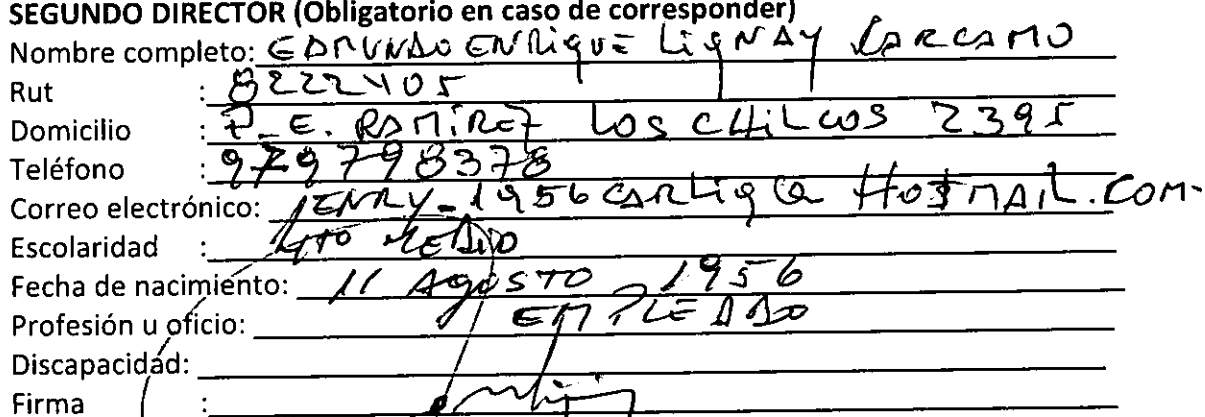 SEGUNDO DIRECTOR (Obligatorio en caso de corresponder)
Nombre completo: EDMUNDO ENRIQUE LIGNAY CARCAMO
Rut : 8222405
Domicilio : P_E. RAMIREZ LOS CHILCOS 2395
Teléfono : 979798378
Correo electrónico: HENRY_1956CARLIG@HOTMAIL.COM-
Escolaridad : 4TO MEDIO
Fecha de nacimiento: 11 AGOSTO 1956
Profesión u oficio: EMPLEADO
Discapacidad:
Firma :